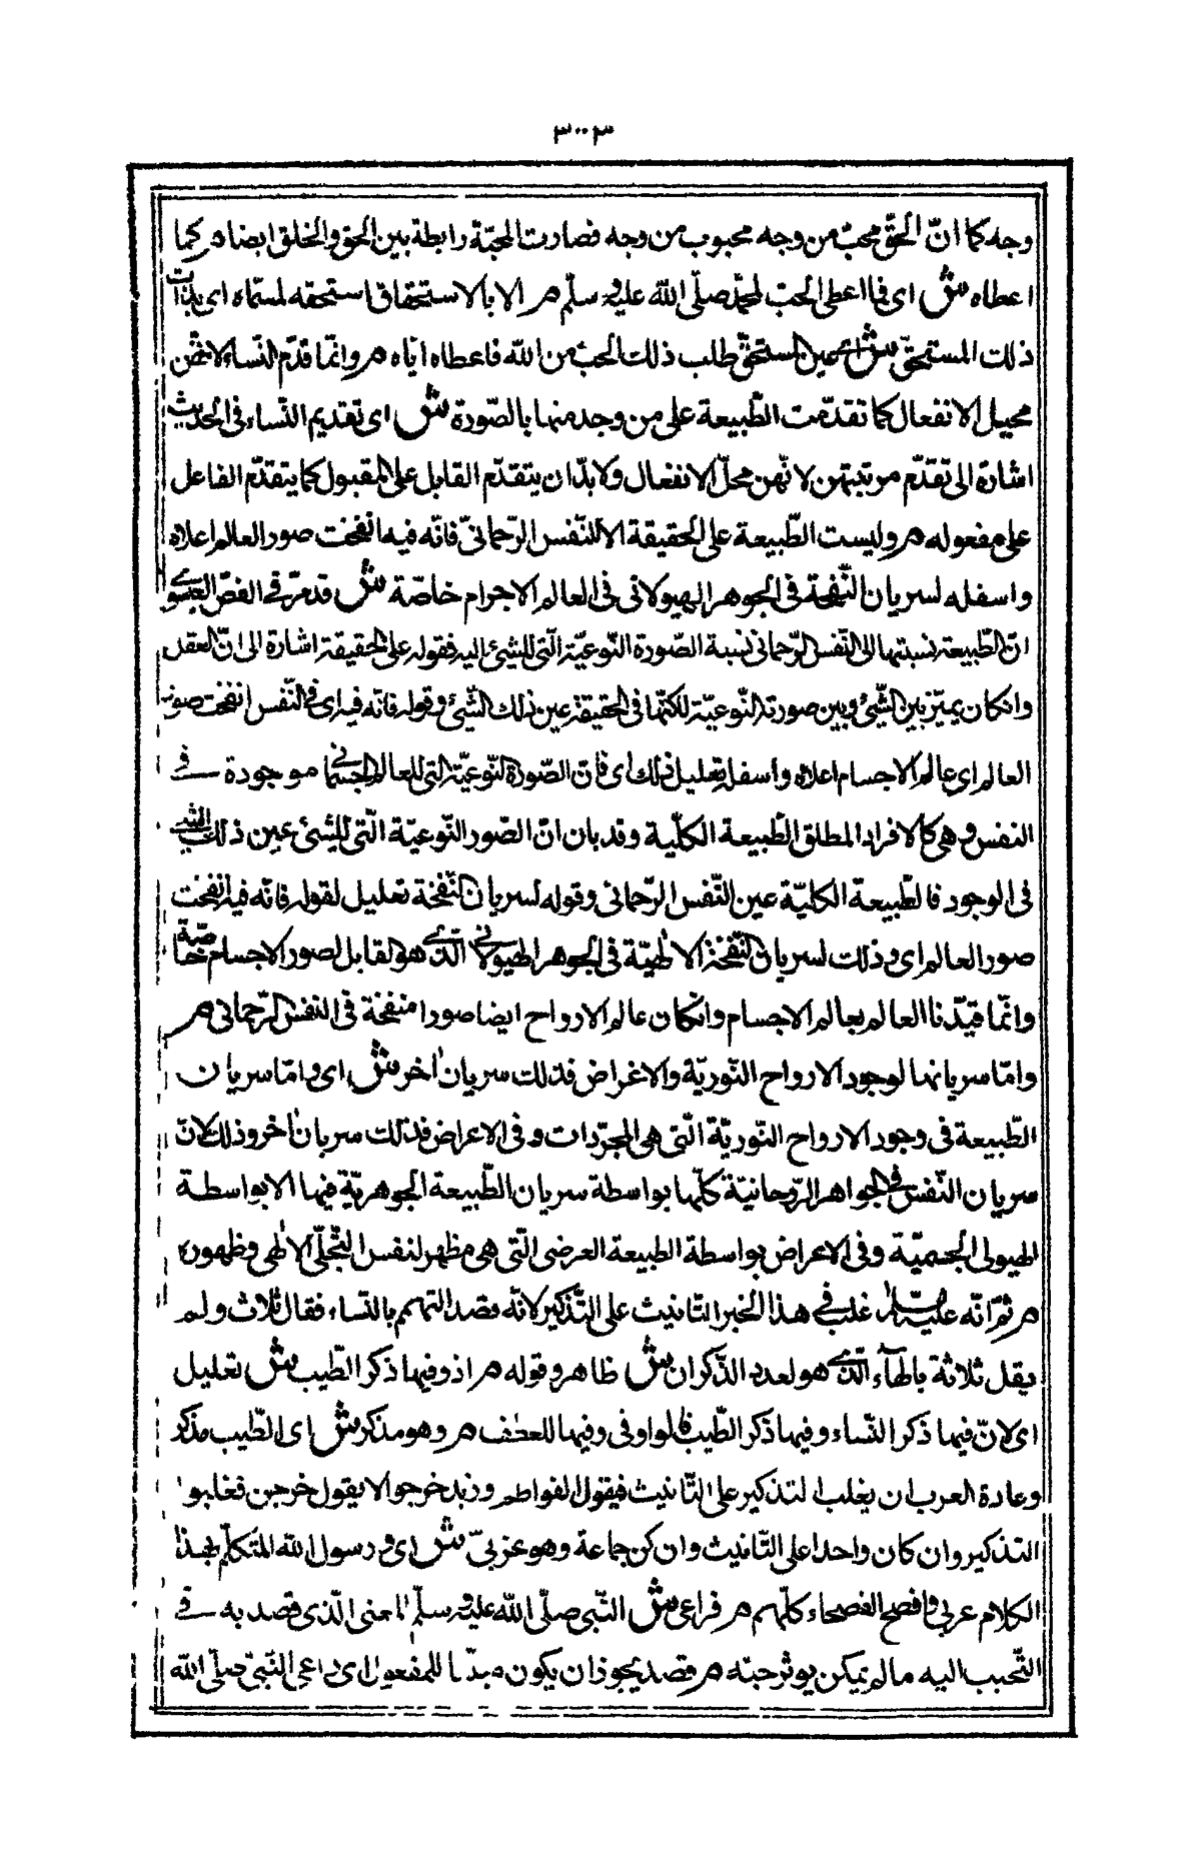 ٣٠٠٣
وجه كما انّ الحقّ محبّ من وجه محبوب من وجه فصارت المحبّة رابطة بين الحق والخلق ايضا م كما
اعطاه ش اى فما اعطى الحبّ لمحمّد صلّى الله عليه وسلّم م الا بالاستحقاق استحقه لمسمّاه اى بذات
ذلك المستحقّ ش اى عين المستحقّ طلب ذلك الحبّ من الله فاعطاه ايّاه م وانّما قدّم النّساء لانّهن
محل الانفعال كما تقدّمت الطّبيعة على من وجد منها بالصّورة ش اى تقديم النّساء فى الحديث
اشارة الى تقدّم مرتبتهن لانّهن محلّ الانفعال ولا بدّ ان يتقدّم القابل على المقبول كما يتقدّم الفاعل
على مفعوله م وليست الطّبيعة على الحقيقة الا النّفس الرّحمانىّ فانّه فيه انفخت صور العالم اعلاه
واسفله لسريان النّفخة فى الجوهر الهيولانى فى العالم الاجرام خاصّة ش قد مرّ فى الفصّ العيسوى
انّ الطّبيعة نسبتها الى النّفس الرّحمانى نسبة الصّورة النّوعيّة الّتى للشيئ اليه فقوله على الحقيقة اشارة الى انّ العقل
وانكان يميّز بين الشّيئ وبين صورته النّوعيّة لكنّها فى الحقيقة عين ذلك الشّيئ وقوله فانّه فيه اى فى النّفس انفخت صور
العالم اى عالم الاجسام اعلاه واسفله تعليل ذلك اى فانّ الصّورة النّوعيّة التى للعالم الجسمانى موجودة فى
النفس وهى كالافراد المطلق الطّبيعة الكلّية وقد بان انّ الصّور النّوعيّة الّتى للشيئ عين ذلك الشئ
فى الوجود فالطّبيعة الكليّة عين النّفس الرّحمانى وقوله لسريان النّفخة تعليل لقوله فانّه فيه انفخت
صور العالم اى وذلك لسريان النّفخة الالهيّة فى الجوهر الهيولانى الذى هو القابل لصور الاجسام خاصّة
وانّما قيّدنا العالم بعالم الاجسام وانكان عالم الارواح ايضا صورا منفخة فى النفس الرّحمانى م
وامّا سريانها لوجود الارواح النّوريّة والاعراض فذلك سريان اخر ش اى وامّا سريان
الطّبيعة فى وجود الارواح النّوريّة الّتى هى المجرّدات وفى الاعراض فذلك سريان اخر وذلك لانّ
سريان النّفس فى الجواهر الرّوحانيّة كلّها بواسطة سريان الطّبيعة الجوهريّة فيها الا بواسطة
الهيولى الجسميّة وفى الاعراض بواسطة الطبيعة العرضى الّتى هى مظهر لنفس التّجلّى الالهى وظهوره
م ثمّ انّه عليه السّلام غلب فى هذا الخبر التّانيث على التّذكير لانّه قصد التهمم بالنّساء فقال ثلاث ولم
يقل ثلاثة بالهاء الذى هو لعدد الذّكران ش ظاهر وقوله م اذ وفيها ذكر الطّيب ش تعليل
اى لانّ فيها ذكر النّساء وفيها ذكر الطّيب فالواو فى وفيها للعطف م وهو مذكر ش اى الطّيب مذكر
وعادة العرب ان يغلب التذكير على التّانيث فيقول الفواطم وزيد خرجوا لا يقول خرجن فغلبوا
التذكير وان كان واحدا على التّانيث وان كن جماعة وهو عربىّ ش اى ورسول الله المتكلّم بهذا
الكلام عربى وافصح الفصحاء كلّهم م فراعى ش النّبى صلّى الله عليه وسلّم المعنى الّذى قصد به فى
التّحبب اليه ما لم يكن يوثر حبّه م قصد يجوز ان يكون مبنيّا للمفعول اى راعى النّبىّ صلّى الله